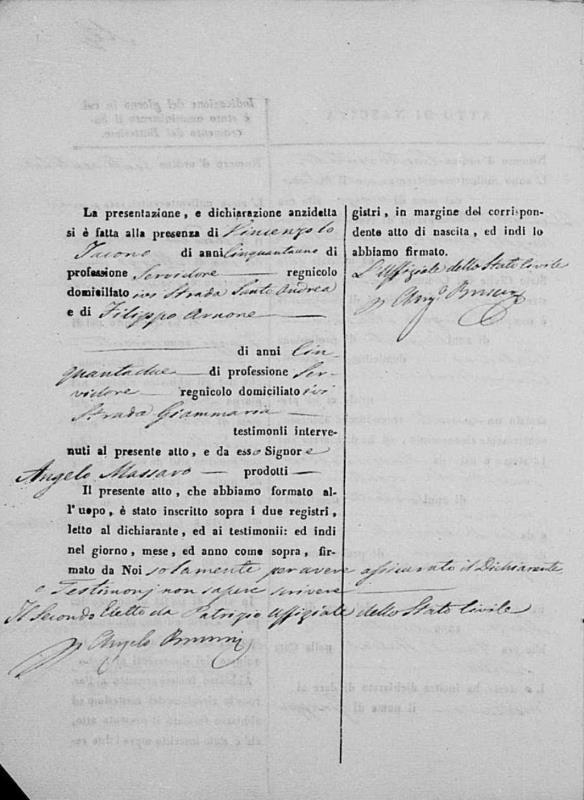 La presentazione, e dichiarazione anzidetta
si è fatta alla presenza di Vincenzo lo
Jacono di anni Cinquantauno di
professione Servidore regnicolo
domiciliato ivi Strada Santo Andrea
e di Filippo Arnone
di anni Cin-
quantadue di professione Ser-
vidore regnicolo domiciliato ivi
Strada Giammaria
testimonii interve-
nuti al presente atto, e da esso Signore
Angelo Massaro prodotti
Il presente atto, che abbiamo formato al-
l'uopo, è stato inscritto sopra i due registri,
letto al dichiarante, ed ai testimonii: ed indi
nel giorno, mese, ed anno come sopra, fir-
mato da Noi solamente per avere assicurato il Dichiarante
e Testimonj non sapere scrivere
Il Secondo Eletto da Patrizio Uffiziale dello Stato Civile
Angelo
gistri, in margine del corrispon-
dente atto di nascita, ed indi lo
abbiamo firmato.
L'Uffiziale dello Stato Civile
Ang.º